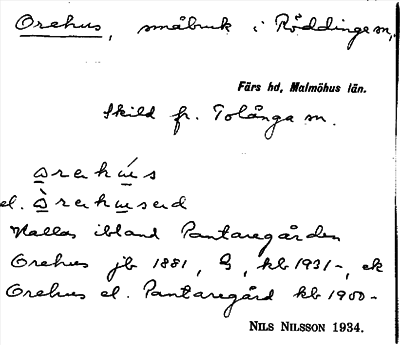 Orehus, småbruk i Röddinge sn,
Färs hd, Malmöhus län.
Skild fr. Tolånga sn.
orehus
el. orehused
Kallas ibland Pantaregården
Orehus jb 1881, G, kb 1931-, ek
Orehus el. Pantaregård kb 1900-
NILS NILSSON 1934.